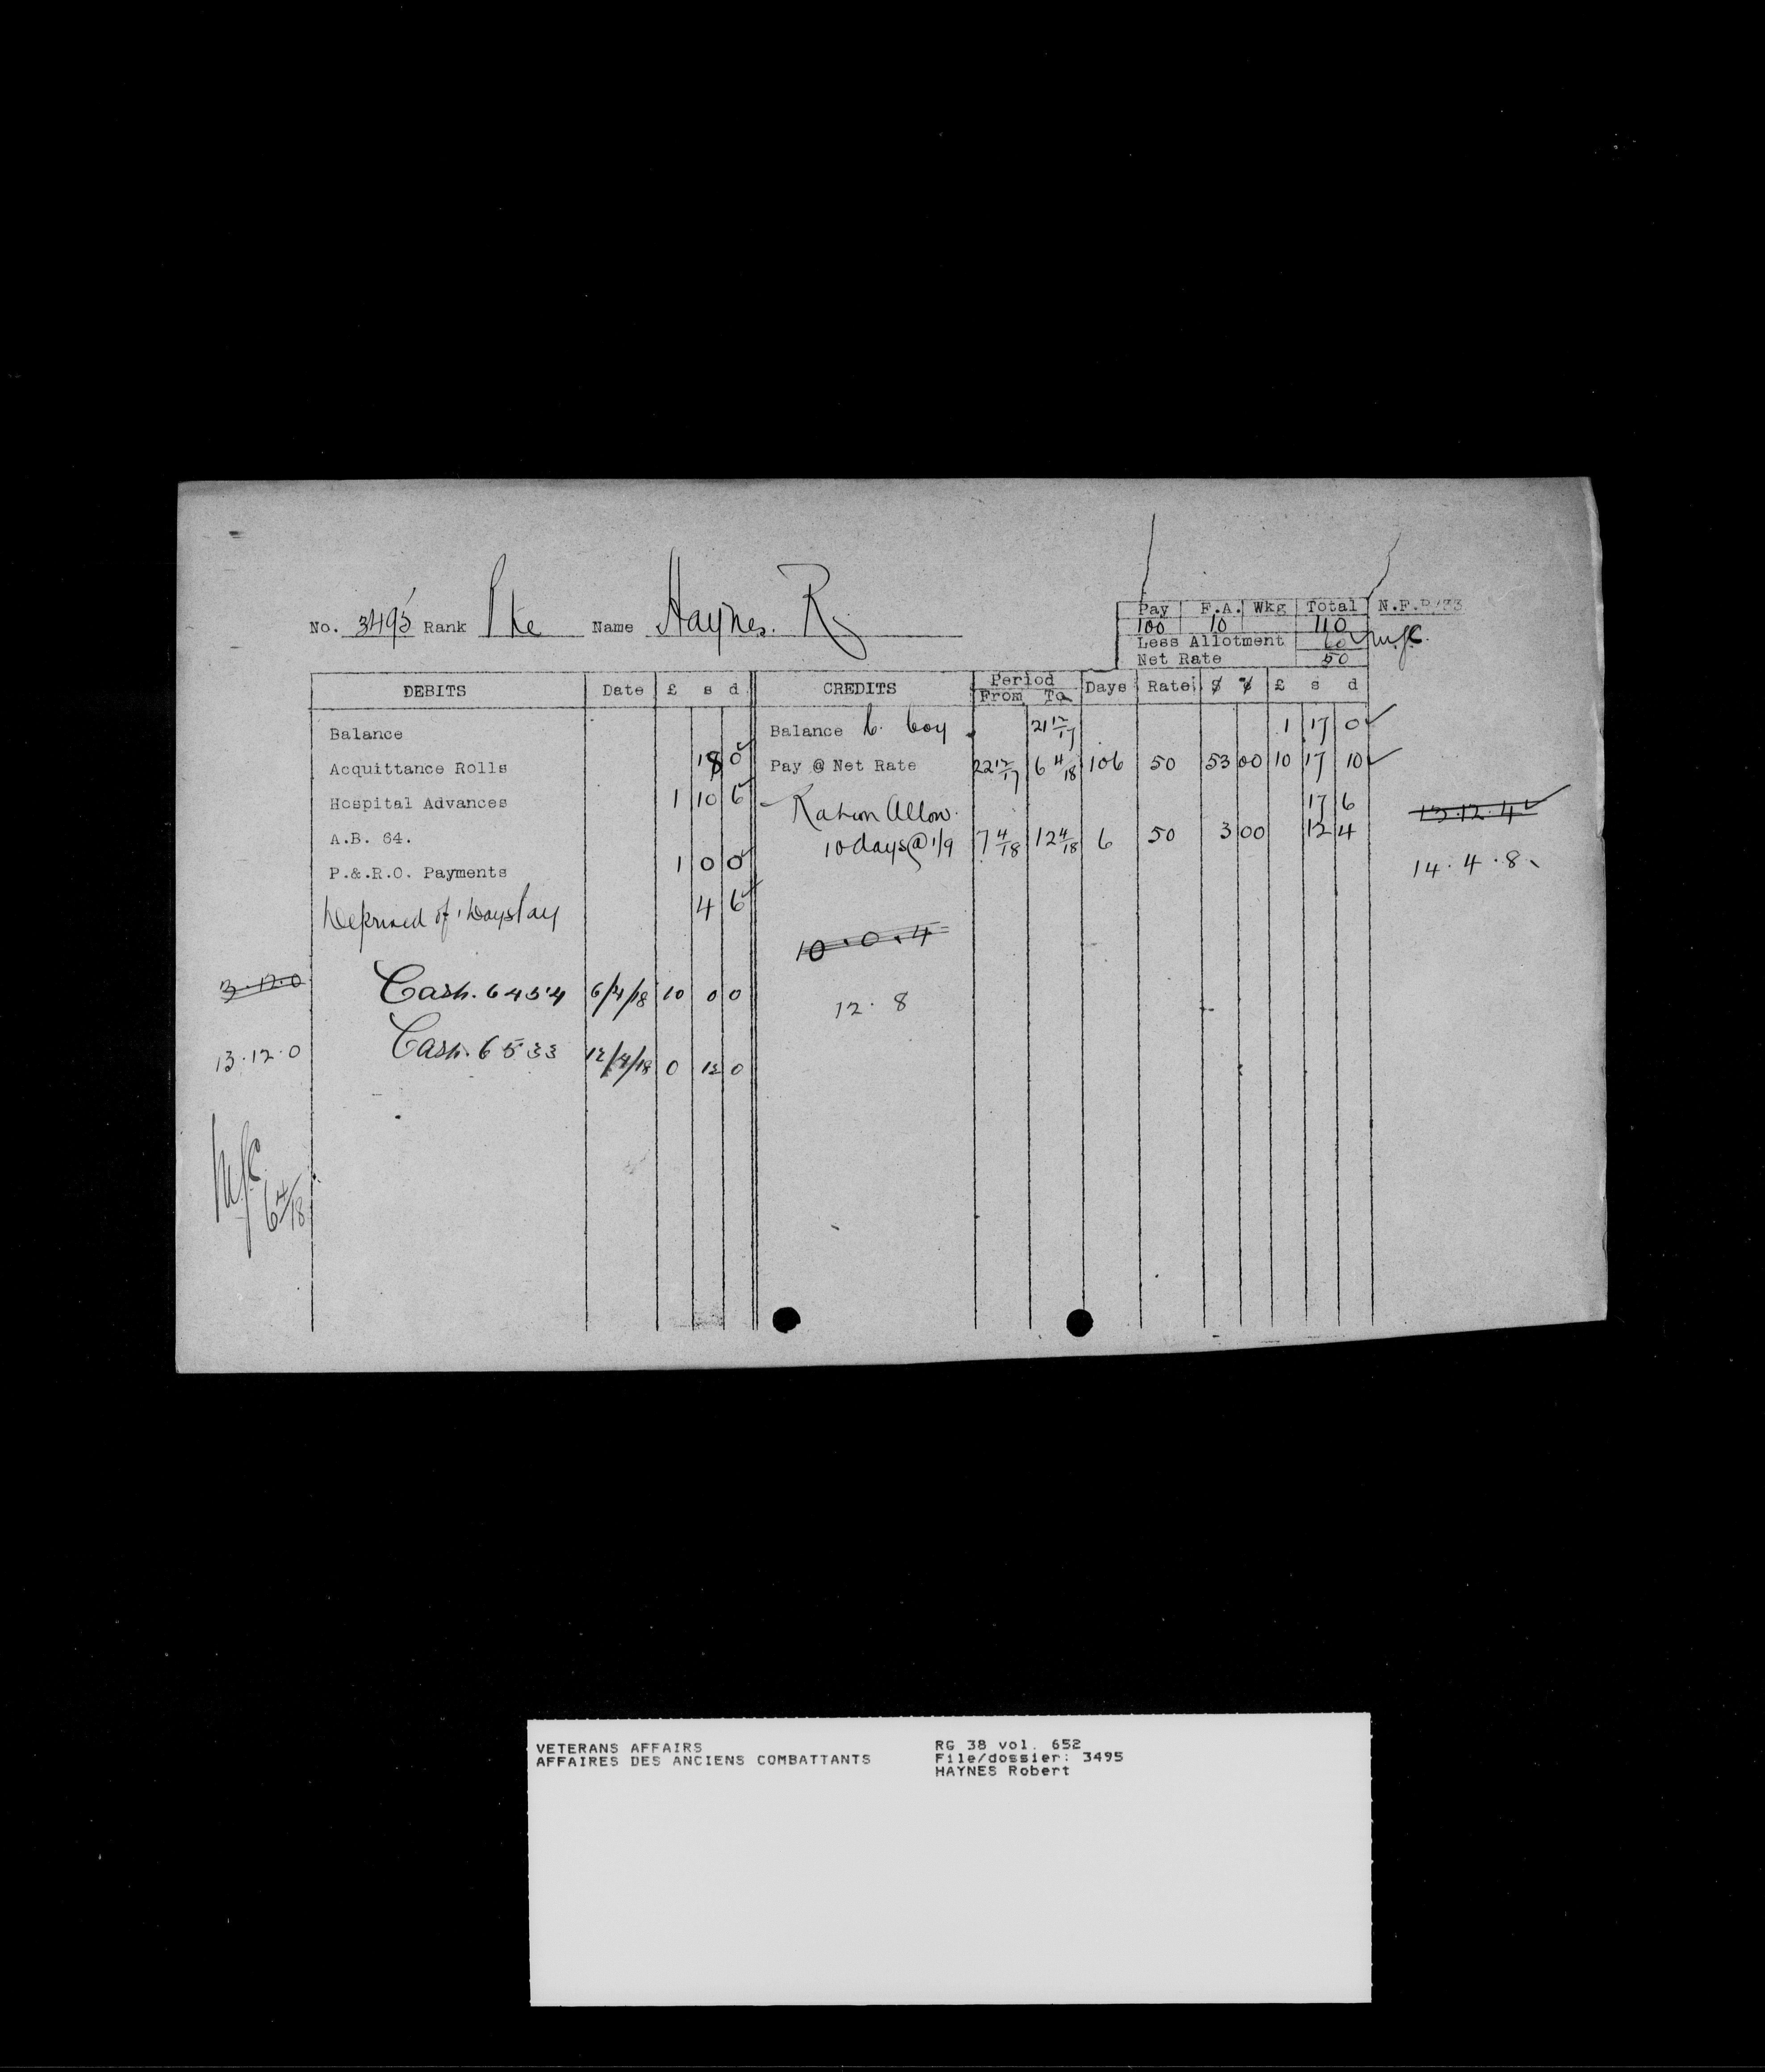 No. 3495 Rank Pte Name Haynes. R.
Pay F.A. Wkg Total N.F.P/33
100 10 110
Less Allotment 60
Net Rate 50
DEBITS Date £ s d CREDITS Period From To Days Rate $ ¢ £ s d
Balance Balance 21 12/17 1 17 0
Acquittance Rolls 18 0 Pay @ Net Rate 22 12/17 6 4/18 106 50 53 00 10 17 10
Hospital Advances 1 10 6 Ration Allow. 17 6 13.12.4
A.B. 64. 10 days @ 1/9 7 4/18 12 4/18 6 50 3 00 12 4
P.&.R.O. Payments 1 0 0 14.4.8
Deprived of 1 Days Pay 4 6
10.0.4
3.12.0 Cash. 6454 6/4/18 10 0 0
12.8
13.12.0 Cash. 6533 12/4/18 0 12 0
6 4/18
VETERANS AFFAIRS RG 38 vol. 652
AFFAIRES DES ANCIENS COMBATTANTS File/dossier: 3495
HAYNES Robert